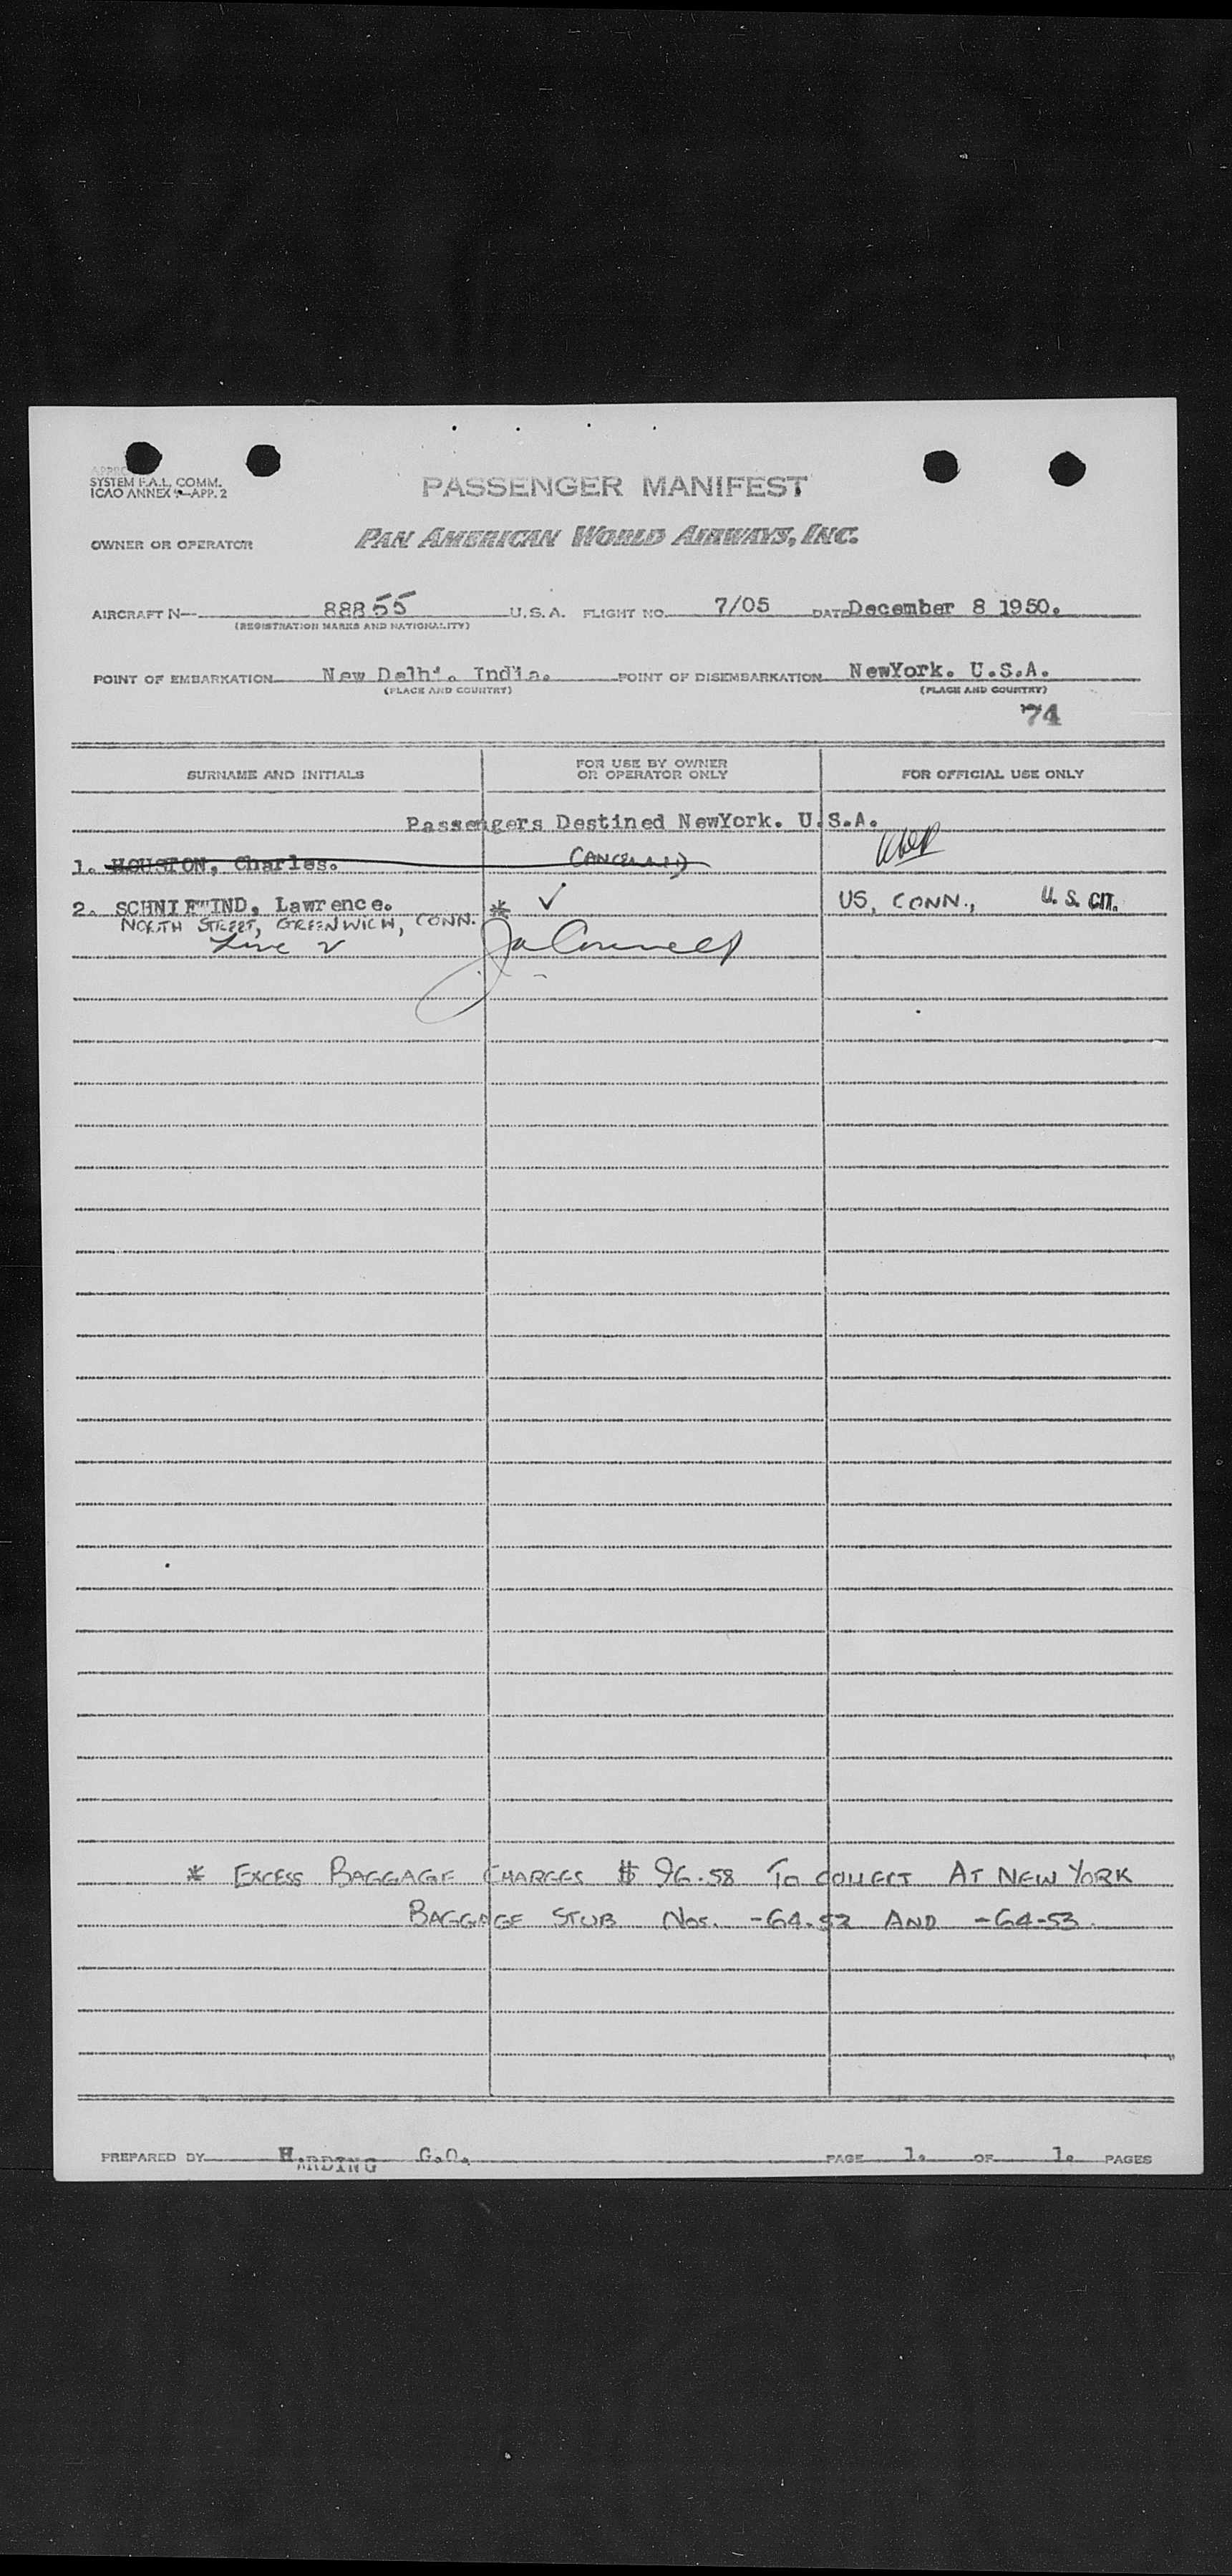 SYSTEM F.A.L. COMM.
ICAO ANNEX 9—APP. 2
PASSENGER MANIFEST
OWNER OR OPERATOR PAN AMERICAN WORLD AIRWAYS, INC.
AIRCRAFT N— 88855 U.S.A. FLIGHT NO. 7/05 DATE December 8 1950.
(REGISTRATION MARKS AND NATIONALITY)
POINT OF EMBARKATION New Delhi. India. POINT OF DISEMBARKATION NewYork. U.S.A.
(PLACE AND COUNTRY) (PLACE AND COUNTRY)
74
SURNAME AND INITIALS FOR USE BY OWNER OR OPERATOR ONLY FOR OFFICIAL USE ONLY
Passengers Destined NewYork. U.S.A.
1. HOUSTON, Charles. CANCELLED
2. SCHNIEWIND, Lawrence. * ✓ US, CONN., U.S. CIT.
NORTH STREET, GREENWICH, CONN.
Line 2
* EXCESS BAGGAGE CHARGES $ 96.58 TO COLLECT AT NEW YORK
BAGGAGE STUB Nos. -64-52 AND -64-53.
PREPARED BY HARDING G.O. PAGE 1. OF 1. PAGES